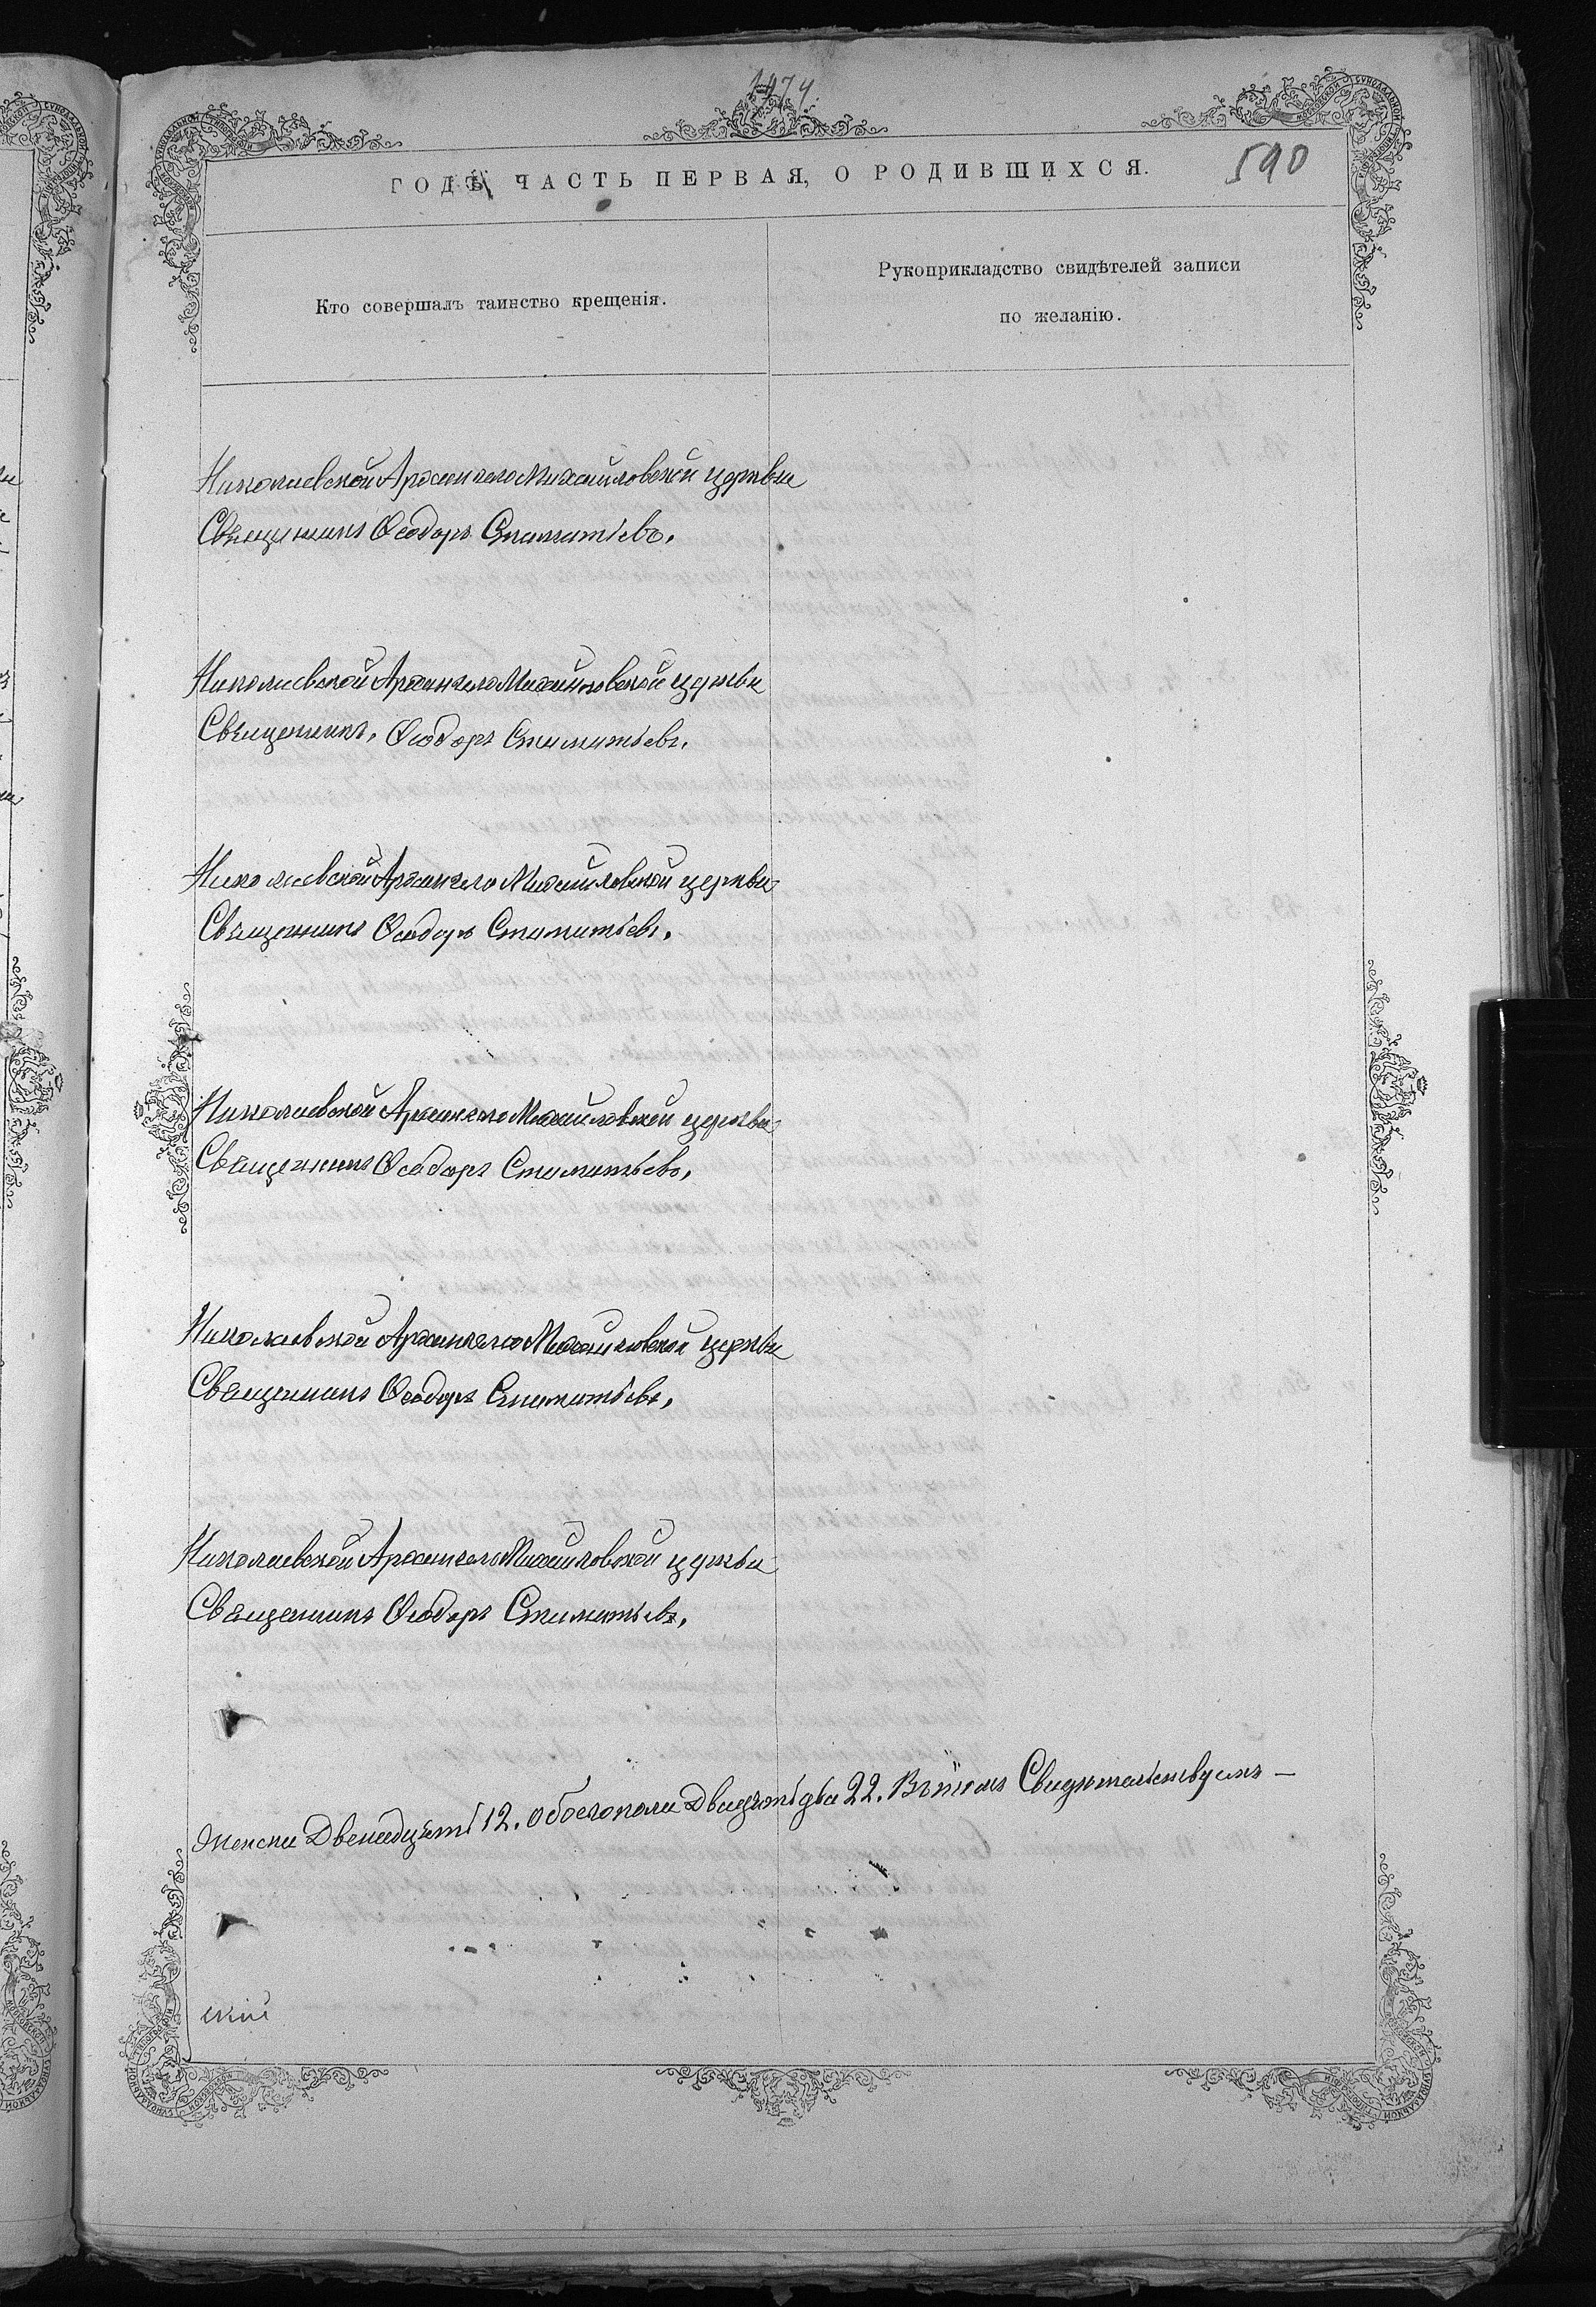 1474
590
ГОДѢ, ЧАСТЬ ПЕРВАЯ, О РОДИВШИХСЯ.
Кто совершалъ таинство крещенія.
Рукоприкладство свидѣтелей записи
по желанію.
Николаевской АрхангелоМихайловской церкви
Священникъ Ѳеодоръ Стаматьевъ.
Николаевской АрхангелоМихайловской церкви
Священникъ, Ѳеодоръ Стаматьевъ.
Николаевской АрхангелоМихайловской церкви
Священникъ Ѳеодоръ Стаматьевъ.
Николаевской АрхангелоМихайловской церкви
Священникъ Ѳеодоръ Стаматьевъ.
Николаевской АрхангелоМихайловской церкви
Священникъ Ѳеодоръ Стаматьевъ.
Николаевской АрхангелоМихайловской церкви
Священникъ Ѳеодоръ Стаматьевъ.
женска Двенадцать 12. обоегопола Двадцать два 22. Вътомъ Свидѣтельствуемъ —
ский